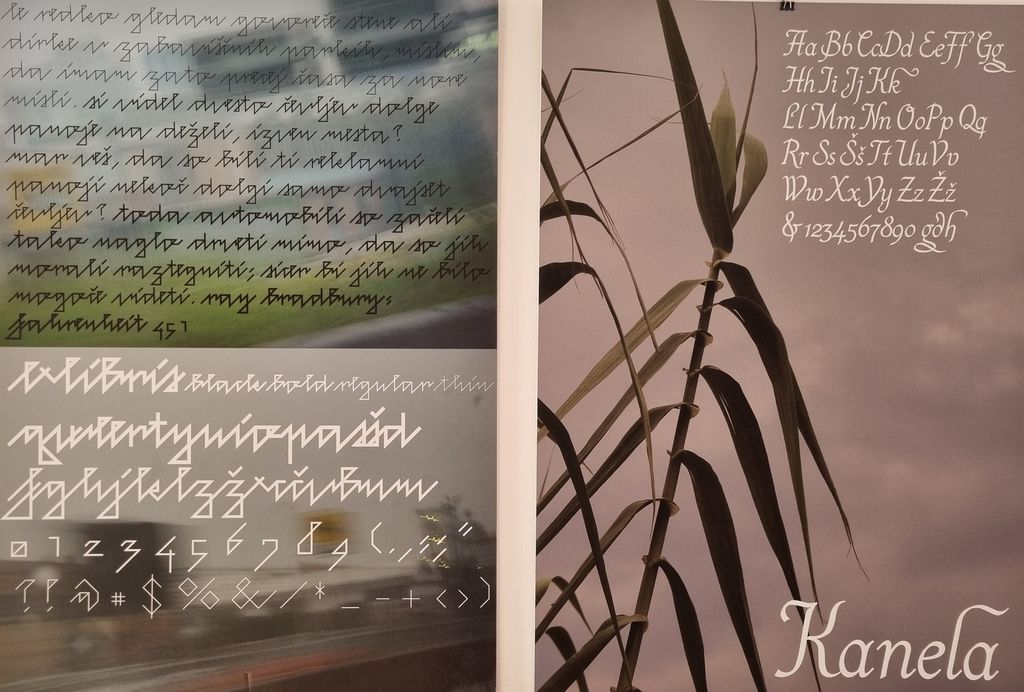 le redko gledam govoreče stene ali
dirke v zabaviščnih parkih, mislim,
da imam zato precej časa za nore
misli. si videl dvesto čevljev dolge
panoje na deželi, izven mesta?
mar veš, da so bili ti reklamni
panoji nekoč dolgi samo dvajset
čevljev? toda avtomobili so začeli
tako naglo drveti mimo, da so jih
morali raztegniti; sicer bi jih ne bilo
mogoče videti. ray bradbury:
fahrenheit 451
exlibris black bold regular thin
qwertyuiopašd
fghjklzžxcčvbnm
0 1 2 3 4 5 6 7 8 9 ( . ,
? ! @ # $ % & / * _ - + < > )
Aa Bb Cc Dd Ee Ff Gg
Hh Ii Jj Kk
Ll Mm Nn Oo Pp Qq
Rr Ss Šš Tt Uu Vv
Ww Xx Yy Zz Žž
& 1234567890 gdh
Kanela